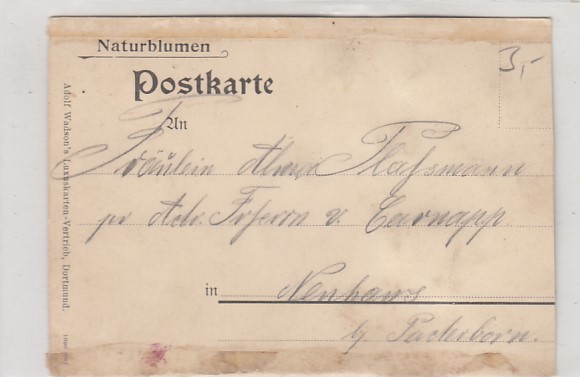 Naturblumen
Postkarte
3,-
An
Fräulein Plaßmann
pr Adr. Frferrn v. Carnapp.
in Neuhaus
b/ Paderborn.
Adolf Wadson's Luxuskarten-Vertrieb, Dortmund.